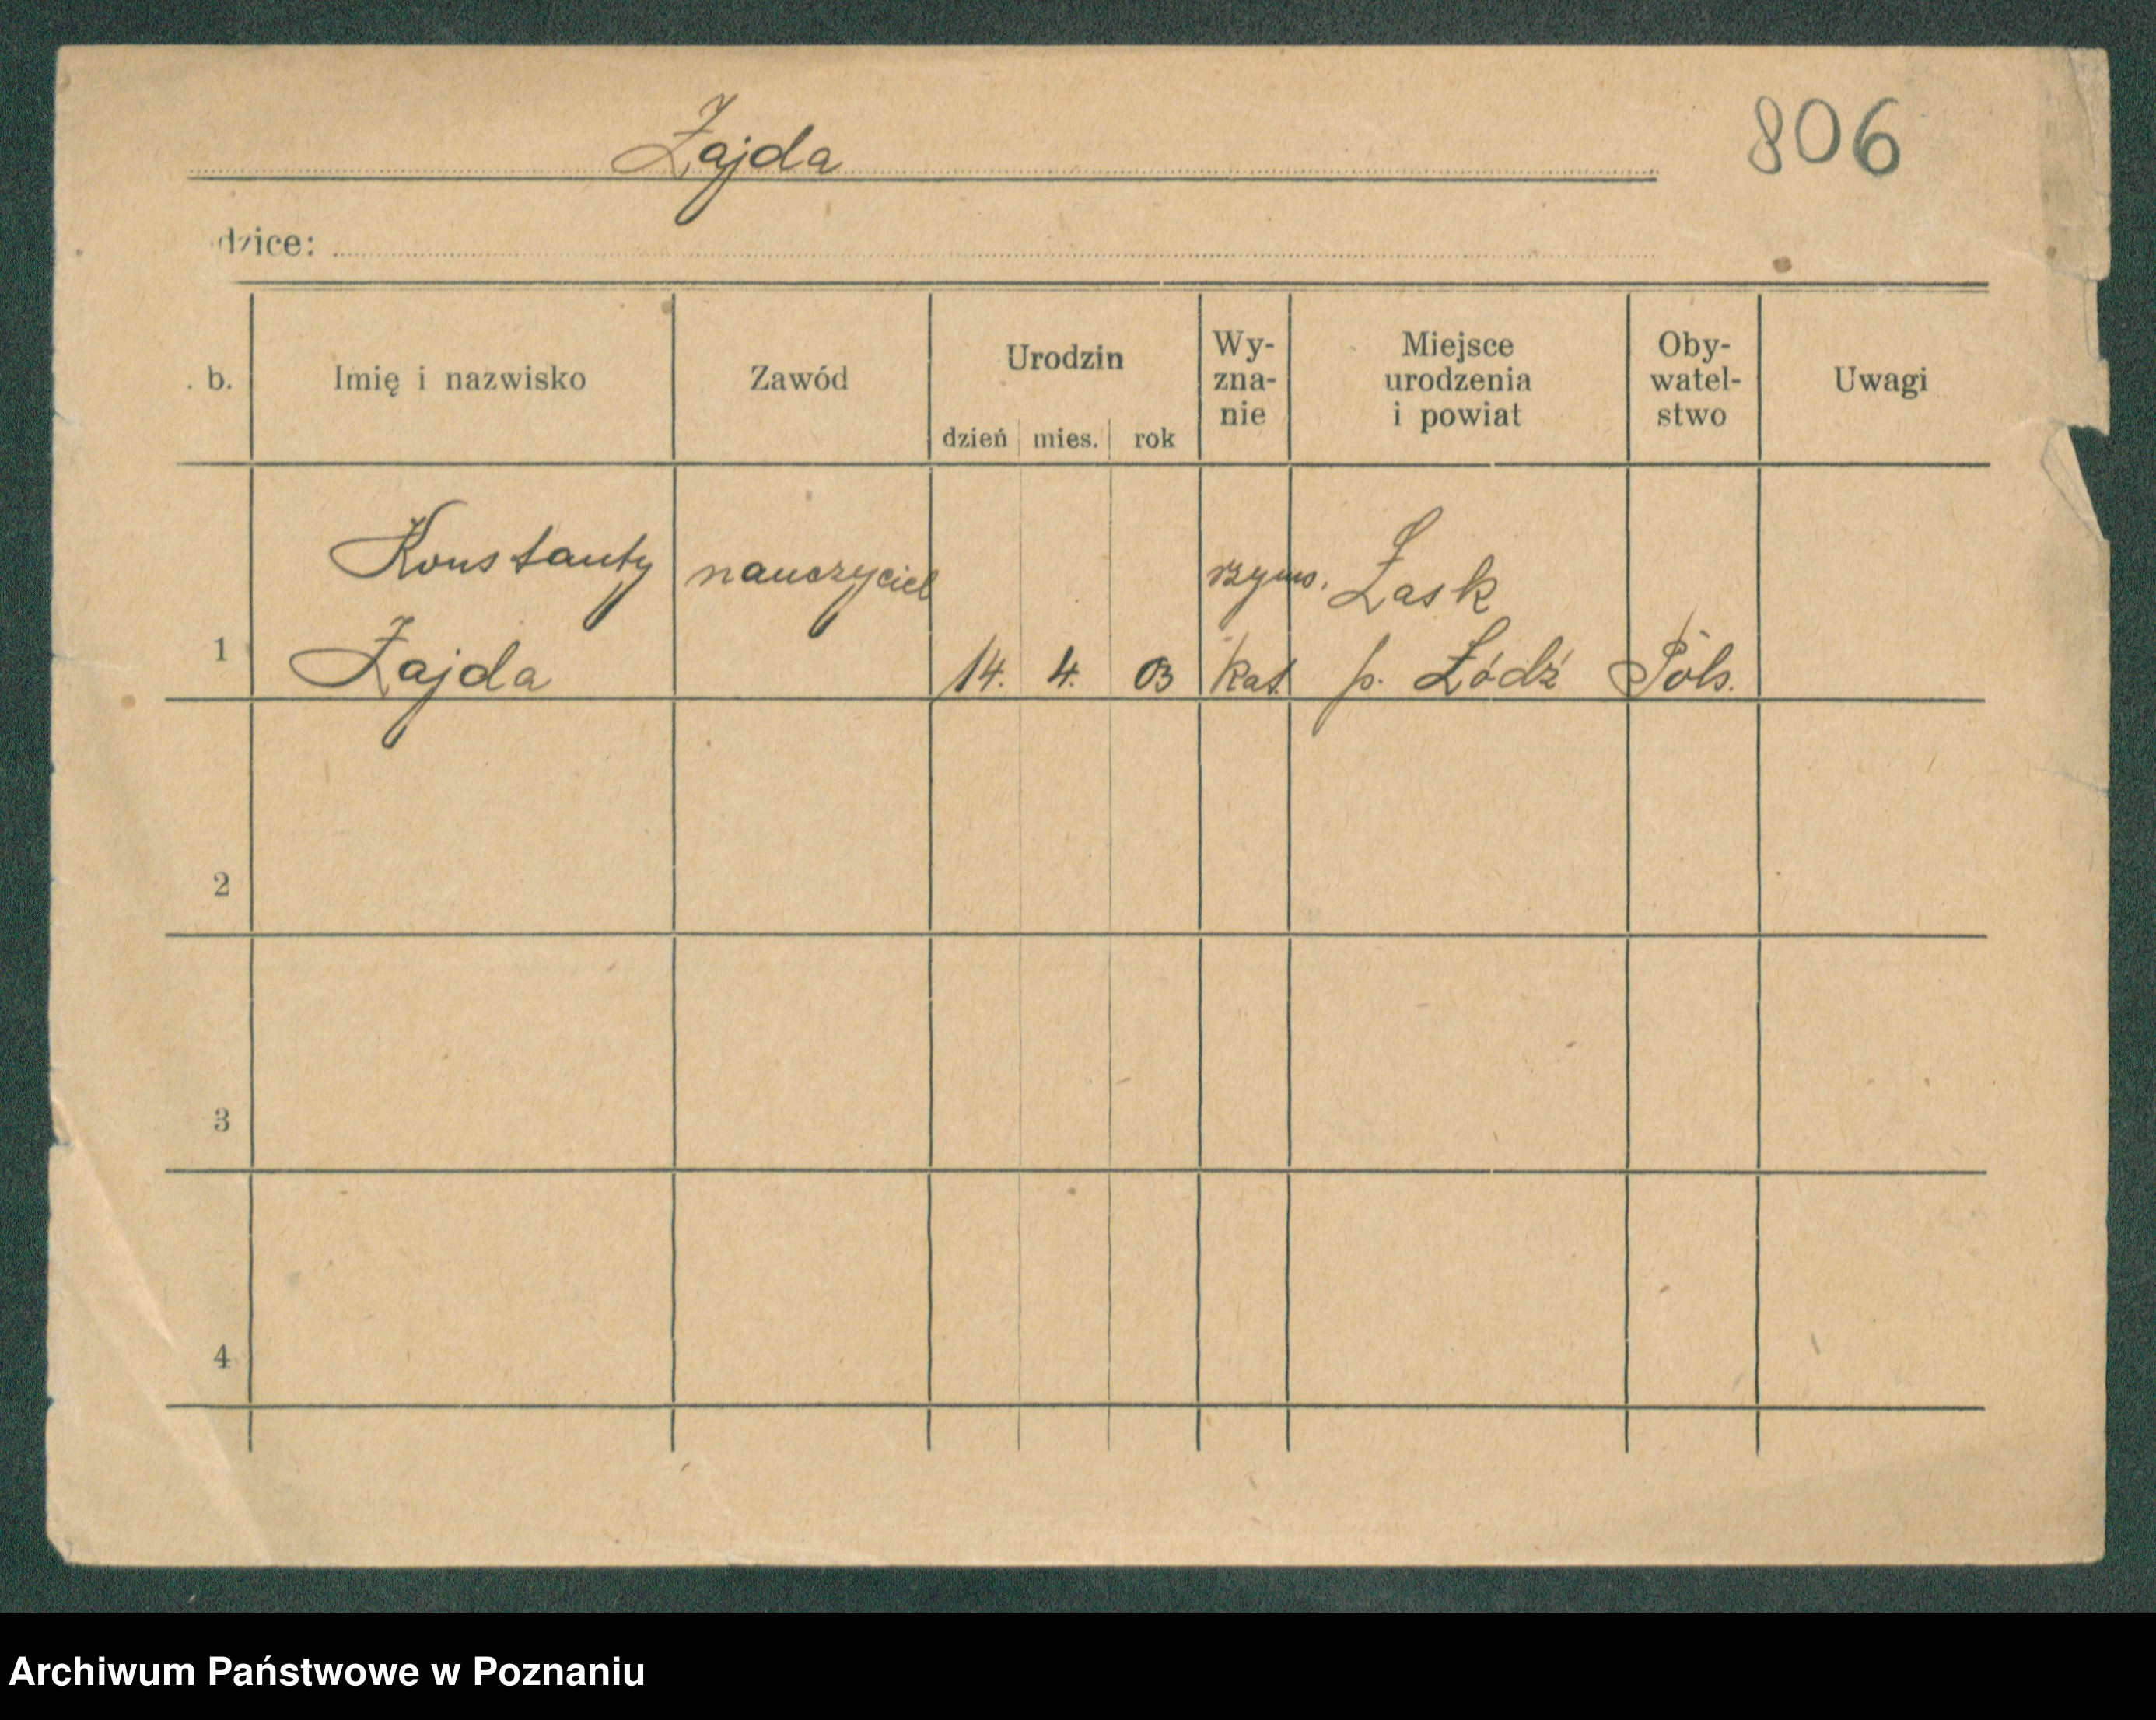 Zajda
806
dzice:
. b.
Imię i nazwisko
Zawód
Urodzin
dzień mies. rok
Wy-
zna-
nie
Miejsce
urodzenia
i powiat
Oby-
watel-
stwo
Uwagi
1
Konstanty
Zajda
nauczyciel
14. 4. 03
rzym.
kat.
Łask
p. Łódź
Pols.
2
3
4
Archiwum Państwowe w Poznaniu